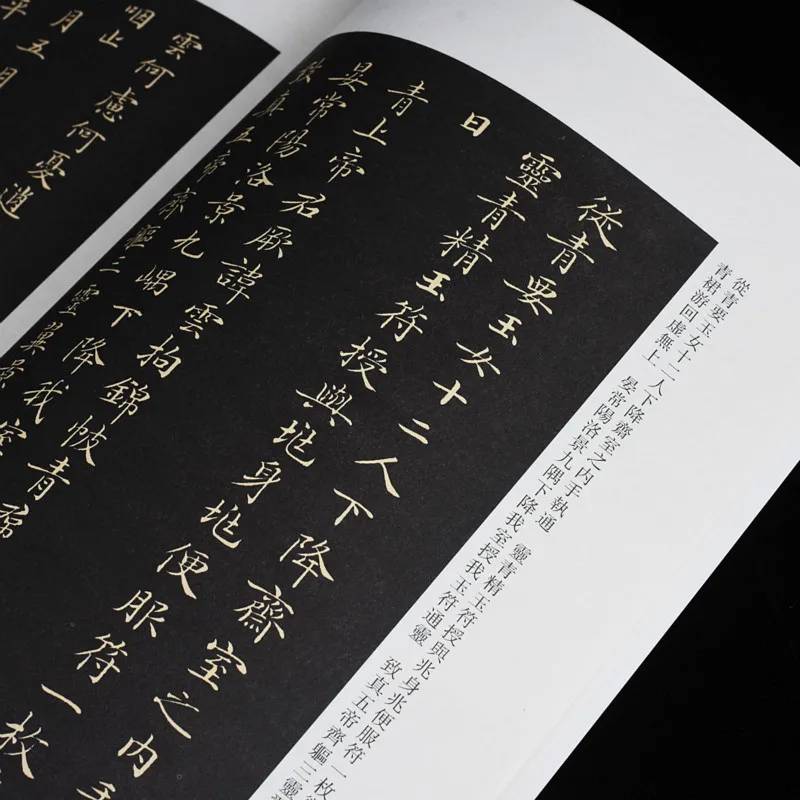 從青要玉女十二人下降齋室之內手
靈青精玉符授與垗身垗便服符一枚
日
青上帝君厥諱雲拘錦帔青帬
晏常陽洛景九嵎下降我室
致真五帝齊軀三靈翼景
雲何慮何憂逍
咽止
月五
平
從青要玉女十二人下降齋室之内手執通 靈青精玉符授與兆身兆便服符一枚
青裙游回虛無上 晏常陽洛景九隅下降我室授我玉符通靈 致真五帝齊軀三靈